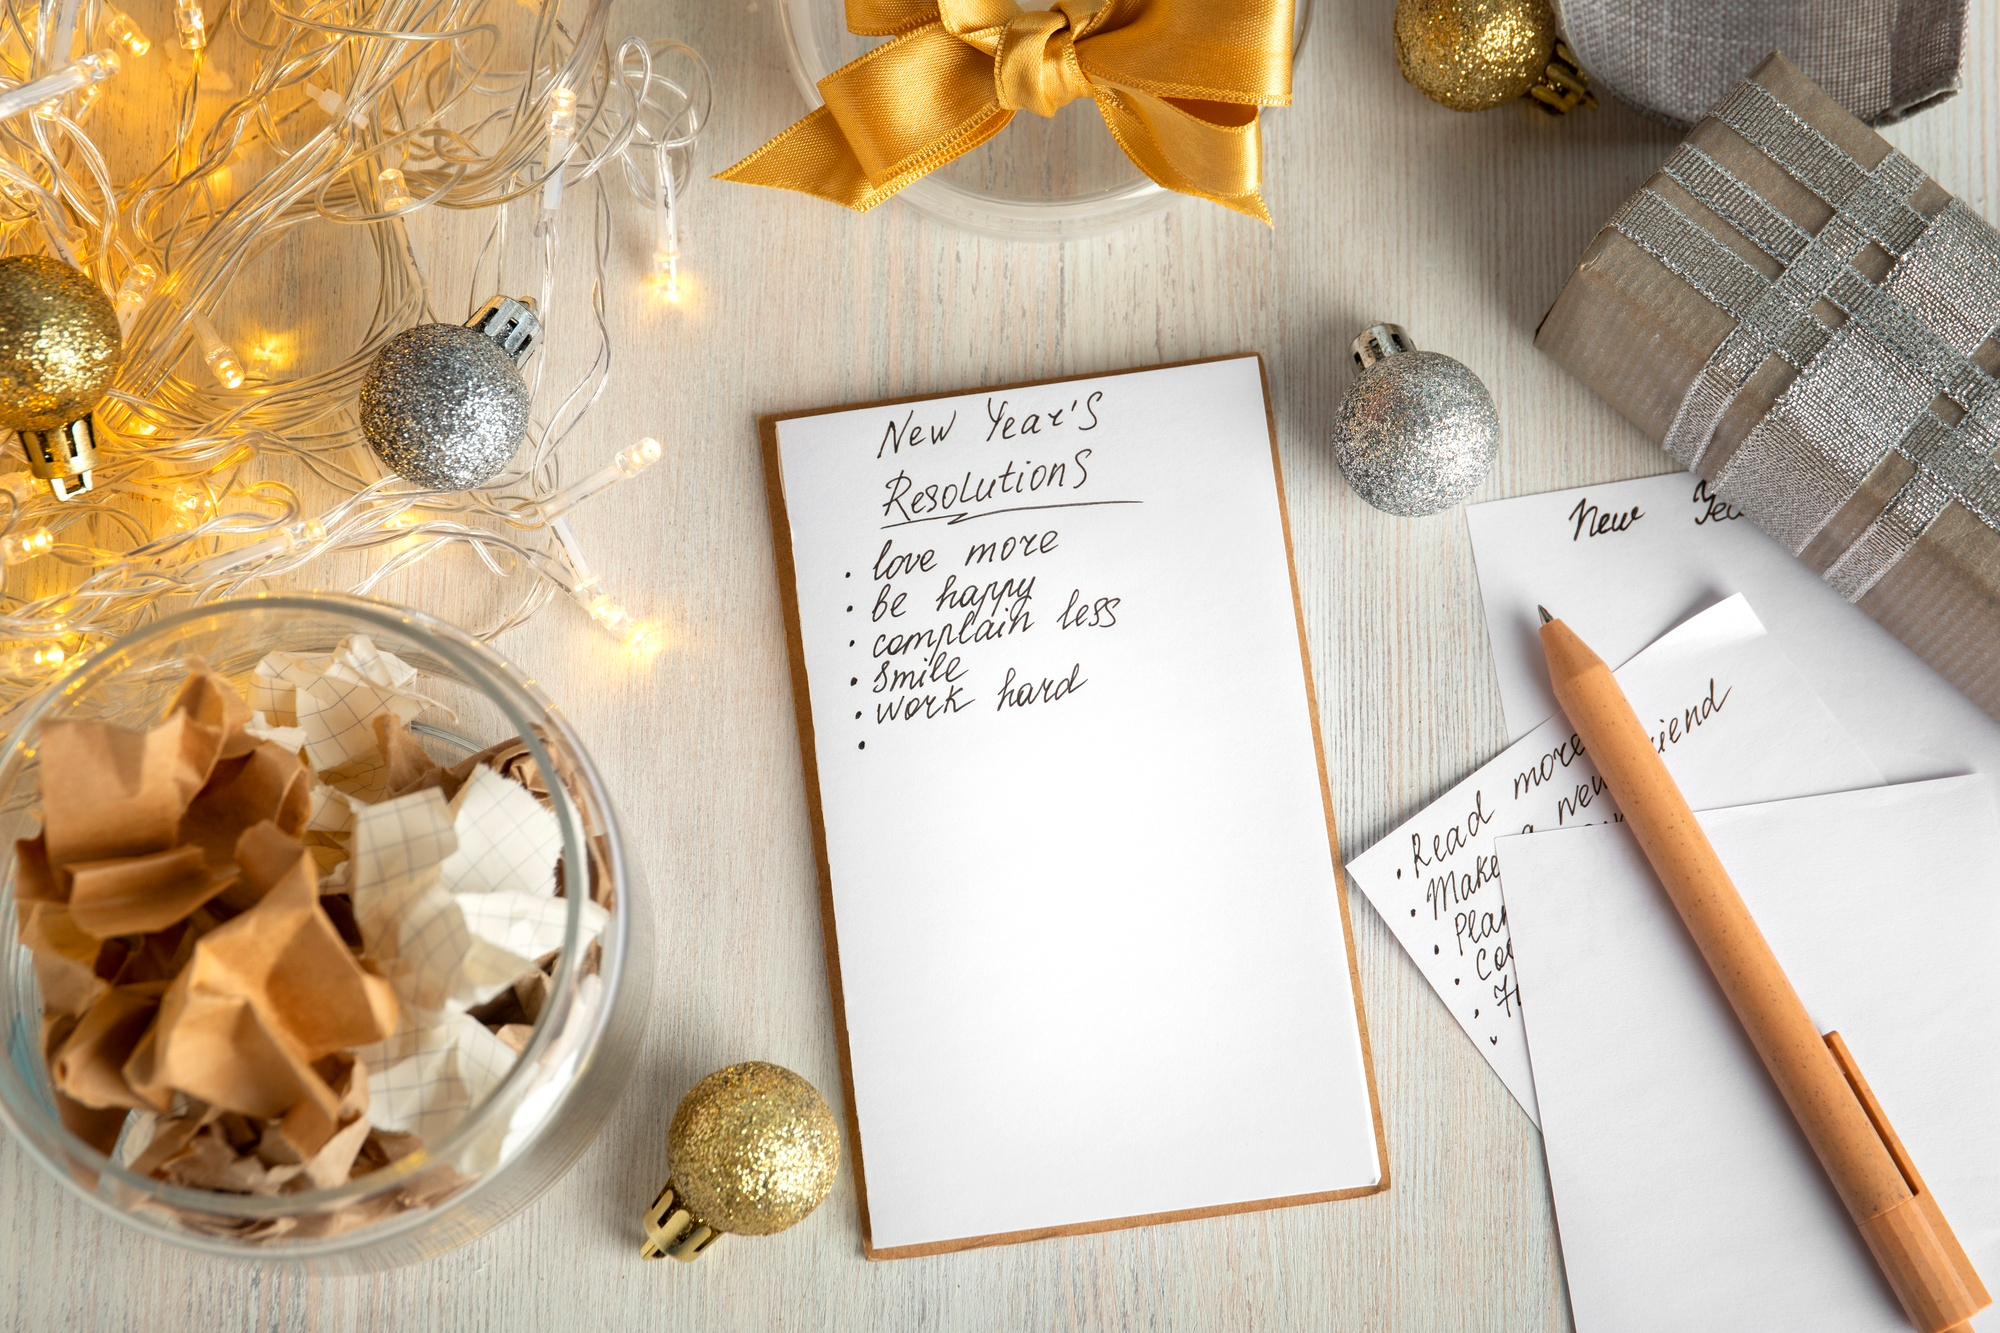 New Year's
Resolutions
• love more
• be happy
• complain less
• smile
• work hard
•
New
• Read more
• Make a new
•
•
•
•